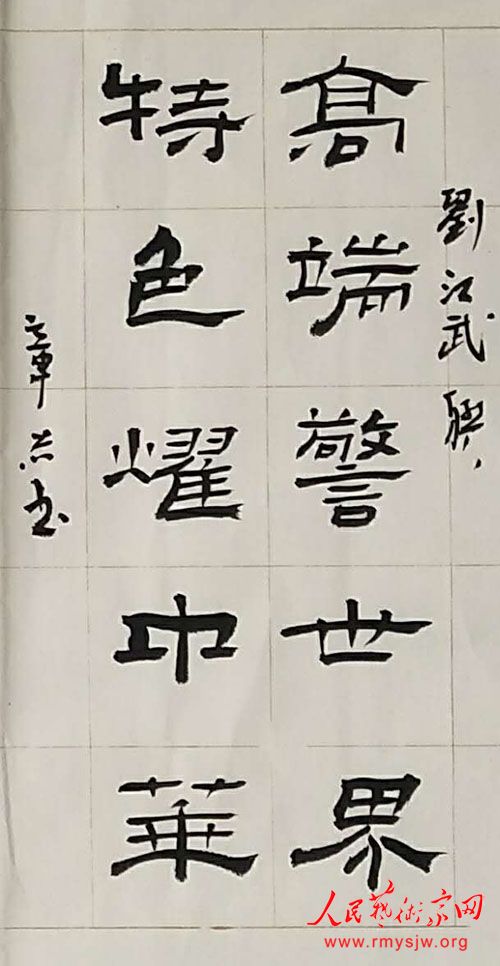 劉江武聯
高端警世界
特色耀中華
章书
人民藝術家网
www.rmysjw.org